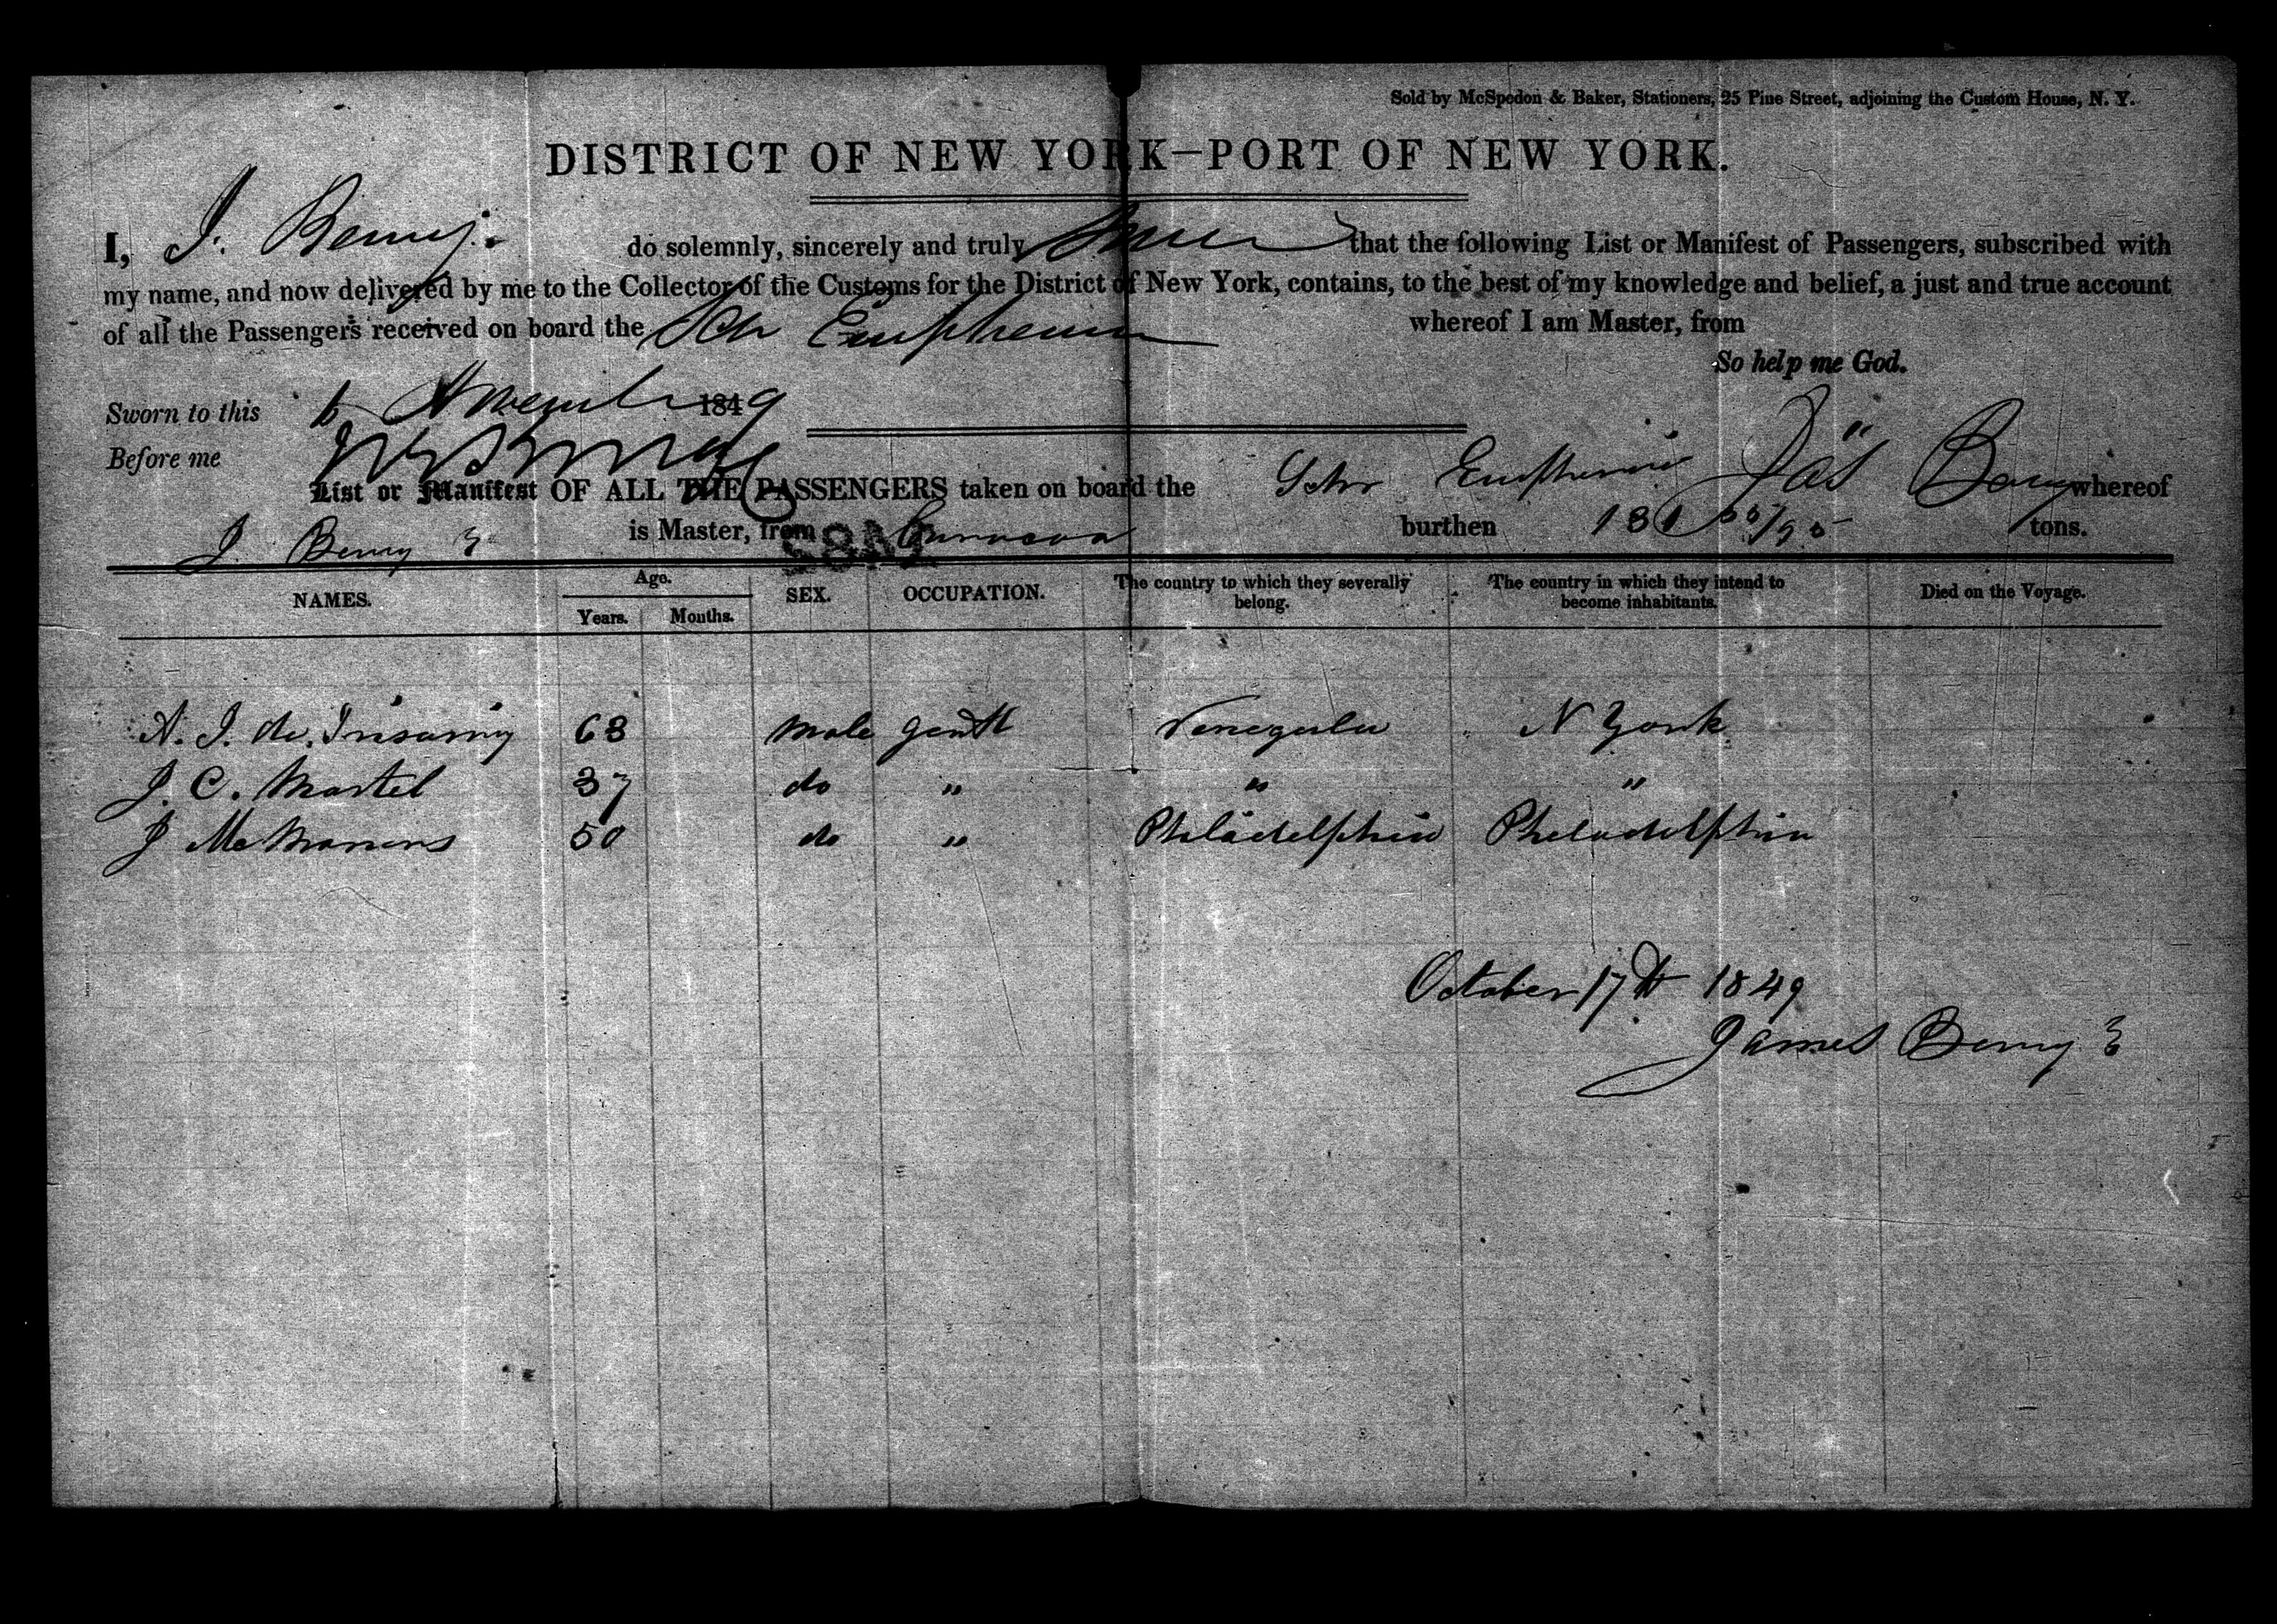 Sold by McSpedon & Baker, Stationers, 25 Pine Street, adjoining the Custom House, N. Y.
DISTRICT OF NEW YORK—PORT OF NEW YORK.
I, J. Berry do solemnly, sincerely and truly swear that the following List or Manifest of Passengers, subscribed with
my name, and now delivered by me to the Collector of the Customs for the District of New York, contains, to the best of my knowledge and belief, a just and true account
of all the Passengers received on board the Schr Euphemia whereof I am Master, from
So help me God.
Sworn to this 6 November 1849
Before me
Jas Berry
List or Manifest OF ALL THE PASSENGERS taken on board the Schr Euphemia whereof
J Berry 3 is Master, from Curacoa burthen tons.
NAMES. Age. SEX. OCCUPATION. The country to which they severally belong. The country in which they intend to become inhabitants. Died on the Voyage.
Years. Months.
A. J. de Irisarry 63 male gentl Venezuela N York
J. C. Martel 37 do " " "
J McManus 50 do " Philadelphia Philadelphia
October 17th 1849
James Berry 3